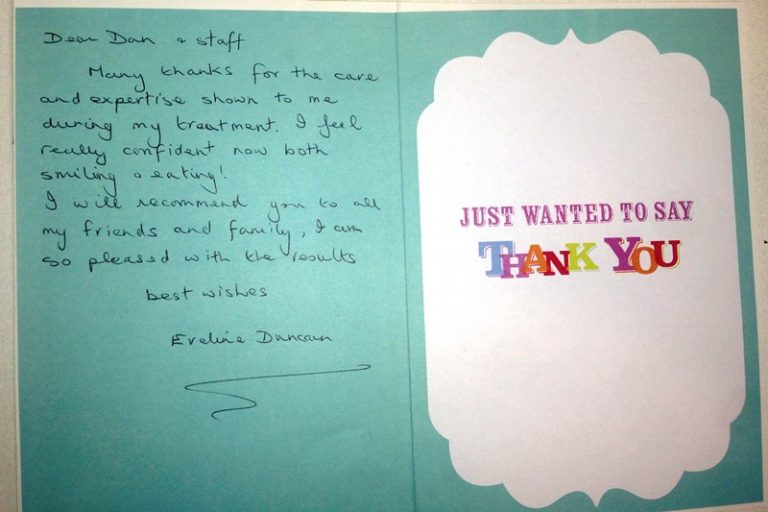 Dear Dan & staff
Many thanks for the care
and expertise shown to me
during my treatment. I feel
really confident now both
smiling & eating!
I will recommend you to all
my friends and family, I am
so pleased with the results
best wishes
Eveline Duncan
JUST WANTED TO SAY
THANK YOU